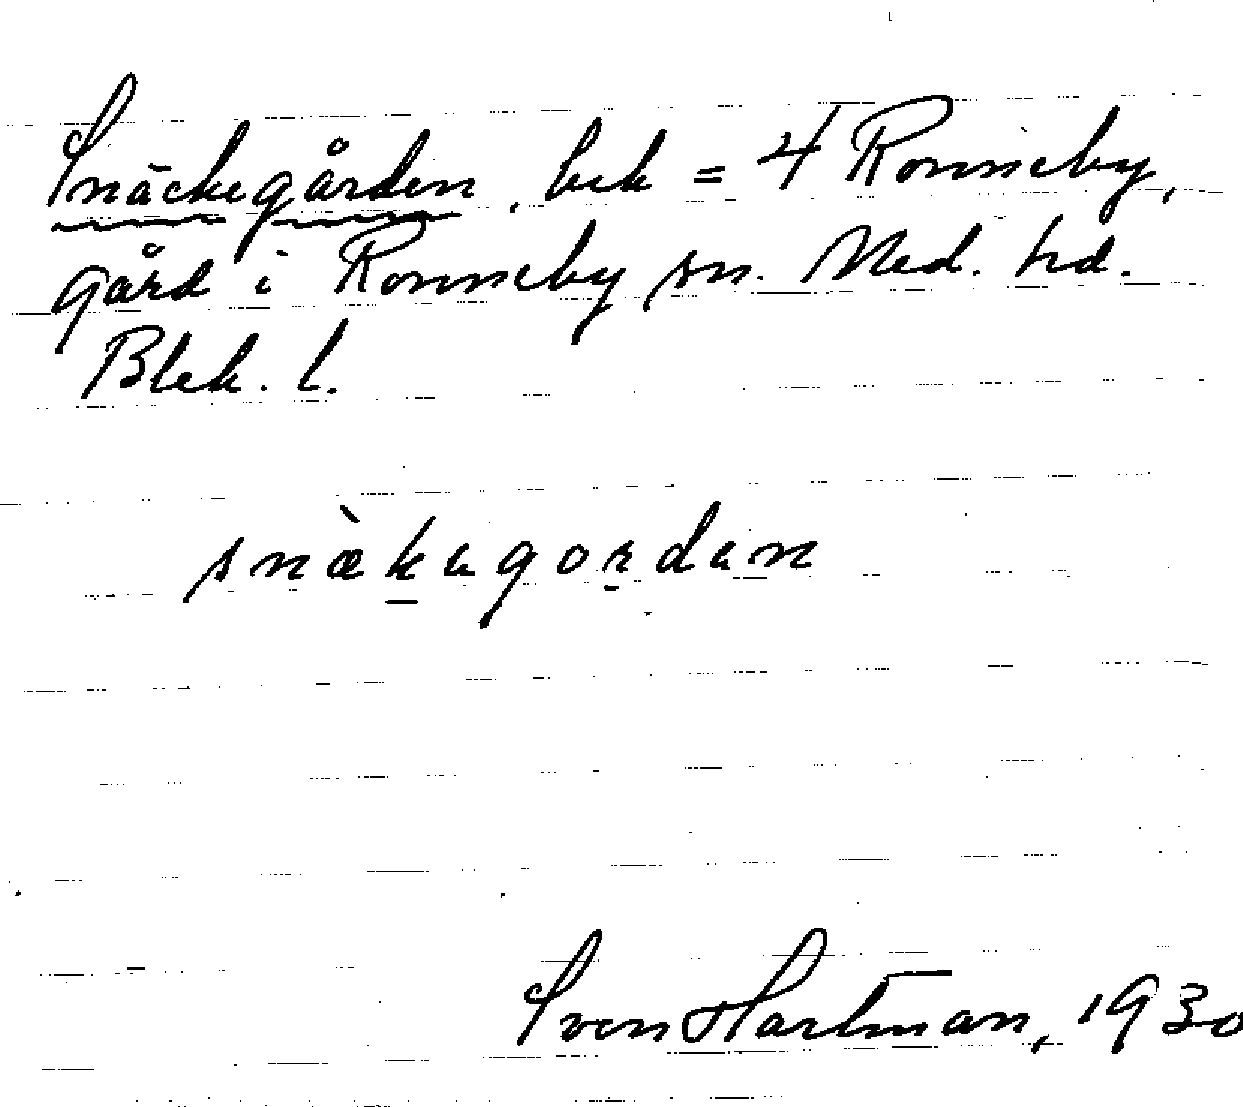 Snäckegården, bek = 4 Ronneby,
gård i Ronneby sn. Med. hd.
Blek. l.
snæ̀kagordan
Sven Hartman, 1930